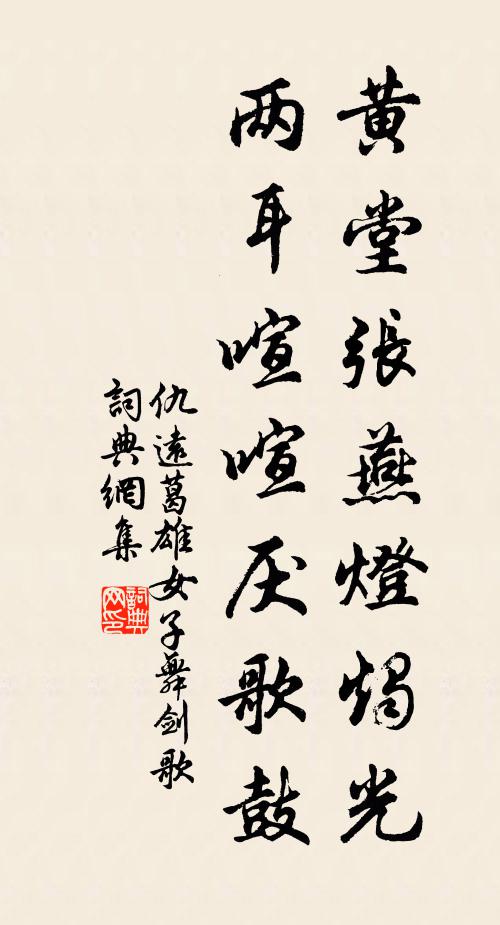 黄堂張燕燈燭光
两耳喧喧厌歌鼓
仇遠葛雄女子舞剑歌
詞典網集
詞典网印